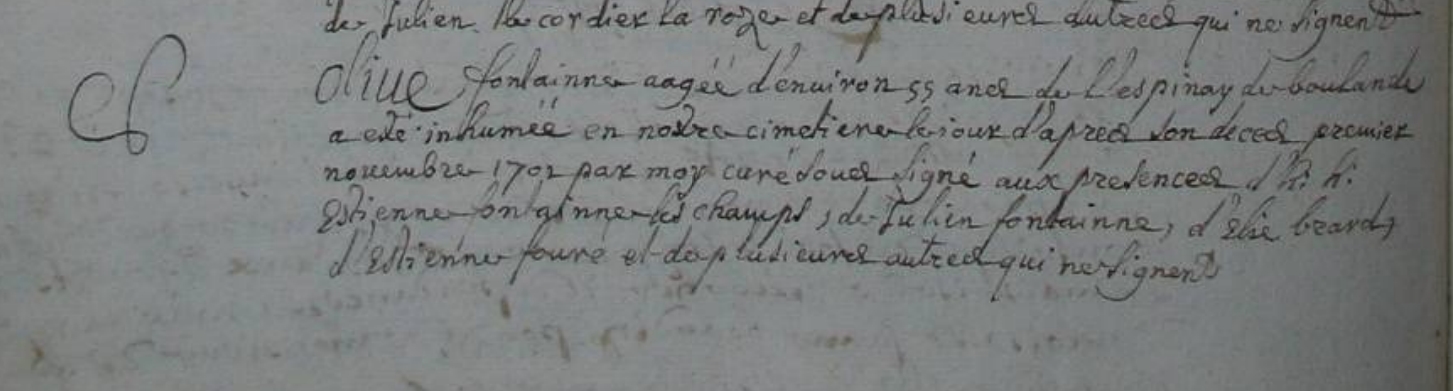 de Julien le cordier la roze et de plusieures autrees qui ne signent
Olive fontainne aagée d'environ 55 anes de l'espinay de boulande
a esté inhumée en nostre cimetiere le jour d'apres son deces premier
novembre 1701 par moy curé sousigné aux presencees d'h. h.
Estienne fontainne les champs, de Julien fontainne, d'Elie beard,
d'Estienne fouré et de plusieures autrees qui ne signent